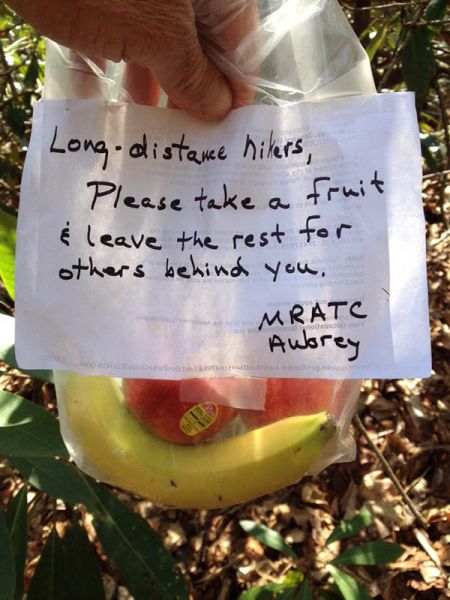 Long-distance hikers,
Please take a fruit
& leave the rest for
others behind you.
MRATC
Aubrey